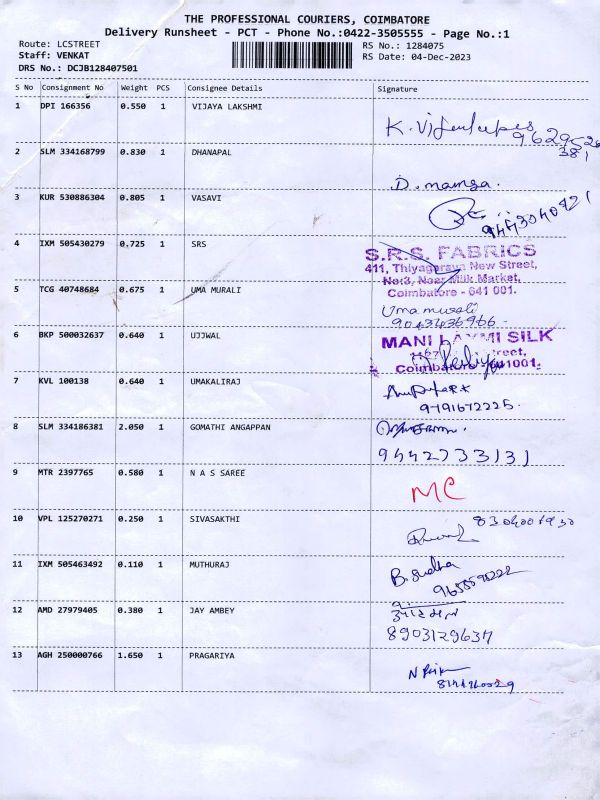 THE PROFESSIONAL COURIERS, COIMBATORE
Delivery Runsheet - PCT - Phone No.:0422-3505555 - Page No.:1
Route: LCSTREET
RS No.: 1284075
Staff: VENKAT
RS Date: 04-Dec-2023
DRS No.: DCJB128407501
S No Consignment No Weight PCS Consignee Details Signature
1 DPI 166356 0.550 1 VIJAYA LAKSHMI
2 SLM 334168799 0.830 1 DHANAPAL
D. mamga.
3 KUR 530886304 0.805 1 VASAVI
4 IXM 505430279 0.725 1 SRS
S.R.S. FABRICS
411, Thiyagaraya New Street,
No:3, Near Milk Market,
Coimbatore - 641 001.
5 TCG 40748684 0.675 1 UMA MURALI
Uma murali
9043436966
6 BKP 500032637 0.640 1 UJJWAL
MANI LAXMI SILK
Street,
Coimbatore 641001.
7 KVL 100138 0.640 1 UMAKALIRAJ
9791672225.
8 SLM 334186381 2.050 1 GOMATHI ANGAPPAN
9442733131
9 MTR 2397765 0.580 1 N A S SAREE
MC
10 VPL 125270271 0.250 1 SIVASAKTHI
11 IXM 505463492 0.110 1 MUTHURAJ
B. Sudha
12 AMD 27979405 0.380 1 JAY AMBEY
8903129637
13 AGH 250000766 1.650 1 PRAGARIYA